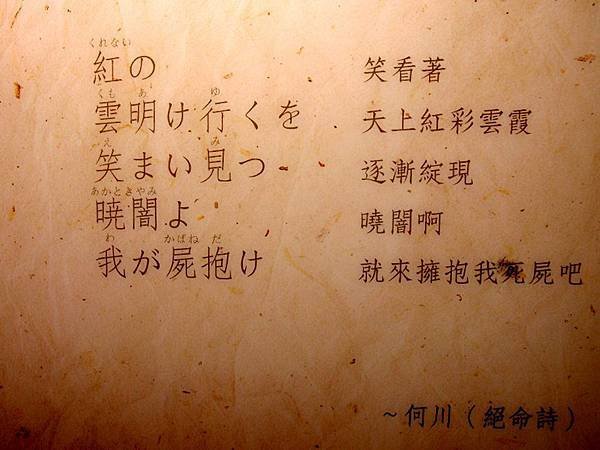 くれない
紅の
くも あ ゆ
雲明け行くを
え み
笑まい見つ
あかときやみ
暁闇よ
わ かばね だ
我が屍抱け
笑看著
天上紅彩雲霞
逐漸綻現
曉闇啊
就來擁抱我死屍吧
~何川（絕命詩）